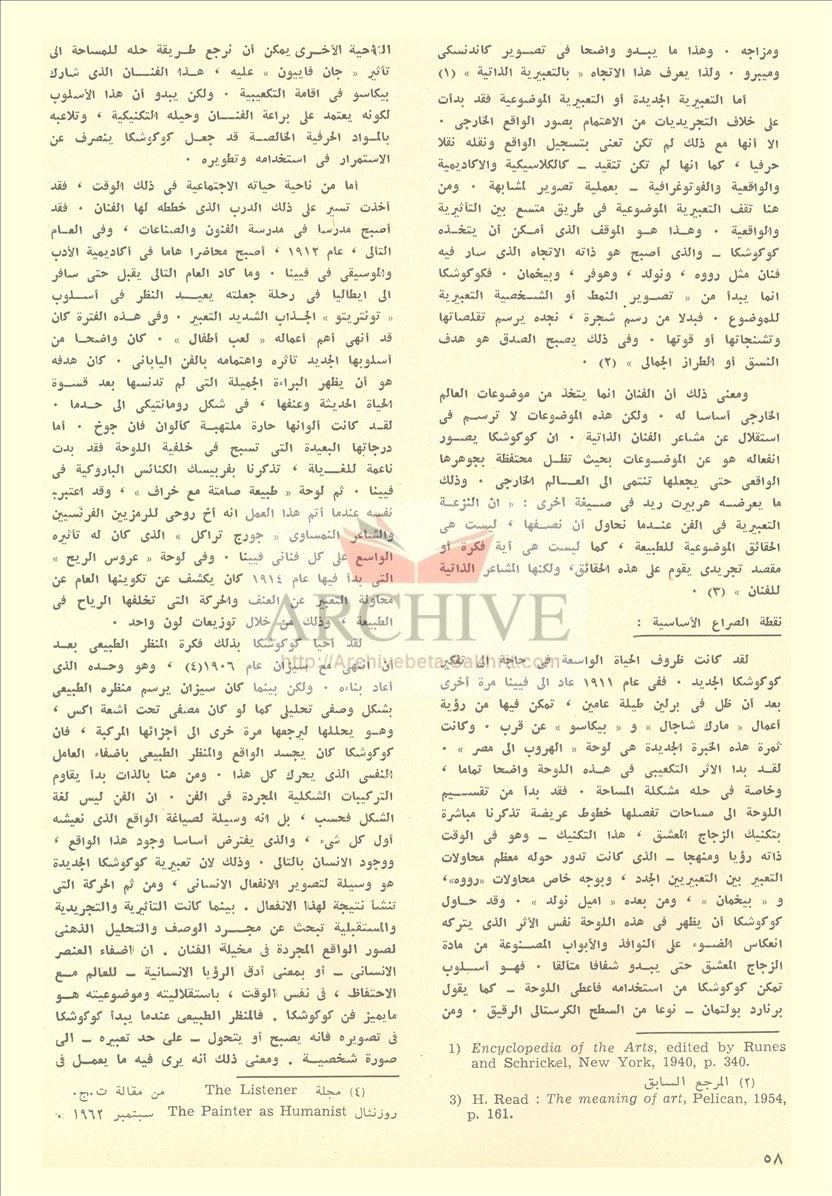 ومزاجه ٠ وهذا ما يبدو واضحا فى تصوير كاندنسكى
وميرو ٠ ولذا يعرف هذا الاتجاه « بالتعبيرية الذاتية » (١)
أما التعبيرية الجديدة أو التعبيرية الموضوعية فقد بدأت
على خلاف التجريديات من الاهتمام بصور الواقع الخارجى ٠
الا أنها مع ذلك لم تكن تعنى بتسجيل الواقع ونقله نقلا
حرفيا ، كما انها لم تكن تتقيد ــ كالكلاسيكية والاكاديمية
والواقعية والفوتوغرافية ــ بعملية تصوير لمشابهة ٠ ومن
هنا تقف التعبيرية الموضوعية فى طريق متسع بين التأثيرية
والواقعية ٠ وهذا هو الموقف الذى أمكن أن يتخذه
كوكوشكا ــ والذى أصبح هو ذاته الاتجاه الذى سار فيه
فنان مثل رووه ، ونولد ، وهوفر ، وبيخمان ٠ فكوكوشكا
انما يبدأ من « تصوير النمط أو الشخصية التعبيرية
للموضوع ٠ فبدلا من رسم شجرة ، نجده يرسم تقلصاتها
وتشنجاتها أو قوتها ٠ وفى ذلك يصبح الصدق هو هدف
النسق أو الطراز الجمالى » (٢) ٠
ومعنى ذلك أن الفنان انما يتخذ من موضوعات العالم
الخارجى أساسا له ٠ ولكن هذه الموضوعات لا ترسم فى
استقلال عن مشاعر الفنان الذاتية ٠ ان كوكوشكا يصور
انفعاله هو عن الموضوعات بحيث تظل محتفظة بجوهرها
الواقعى حتى يجعلها تنتمى الى العالم الخارجى ٠ وذلك
ما يعرضه هربرت ريد فى صيغة أخرى : « ان النزعة
التعبيرية فى الفن عندما نحاول أن نصفها ، ليست هى
الحقائق الموضوعية للطبيعة ، كما ليست هى أية فكرة أو
مقصد تجريدى يقوم على هذه الحقائق، ولكنها المشاعر الذاتية
للفنان » (٣) ٠
نقطة الصراع الأساسية :
لقد كانت ظروف الحياة الواسعة فى حاجة الى تفكير
كوكوشكا الجديد ٠ ففى عام ١٩١١ عاد الى فيينا مرة أخرى
بعد أن ظل فى برلين طيلة عامين ، تمكن فيها من رؤية
أعمال « مارك شاجال » و « بيكاسو » عن قرب ٠ وكانت
ثمرة هذه الخبرة الجديدة هى لوحة « الهروب الى مصر » ٠
لقد بدا الاثر التكعيبى فى هذه اللوحة واضحا تماما ،
وخاصة فى حله مشكلة المساحة ٠ فقد بدأ من تقسيم
اللوحة الى مساحات تفصلها خطوط عريضة تذكرنا مباشرة
بتكنيك الزجاج المعشق ، هذا التكنيك ــ وهو فى الوقت
ذاته رؤيا ومنهجا ــ الذى كانت تدور حوله معظم محاولات
التعبير بين التعبيريين الجدد ، وبوجه خاص محاولات «رووه»،
و « بيخمان » ، ومن بعده « اميل نولد » ٠ وقد حاول
كوكوشكا أن يظهر فى هذه اللوحة نفس الأثر الذى يتركه
انعكاس الضوء على النوافذ والأبواب المصنوعة من مادة
الزجاج المعشق حتى يبدو شفافا متألقا ٠ فهو أسلوب
تمكن كوكوشكا من استخدامه فأعطى اللوحة ــ كما يقول
برنارد بولتمان ــ نوعا من السطح الكرستالى الرقيق ٠ ومن
1) Encyclopedia of the Arts, edited by Runes
and Schrickel, New York, 1940, p. 340.
(٢) المرجع السابق
3) H. Read : The meaning of art, Pelican, 1954,
p. 161.
الناحية الأخرى يمكن أن نرجع طريقة حله للمساحة الى
تأثير « جان فاييون » عليه ، هذا الفنان الذى شارك
بيكاسو فى اقامة التكعيبية ٠ ولكن يبدو أن هذا الأسلوب
لكونه يعتمد على براعة الفنان وحيله التكنيكية ، وتلاعبه
بالمواد الحرفية الخالصة قد جعل كوكوشكا ينصرف عن
الاستمرار فى استخدامه وتطويره ٠
أما من ناحية حياته الاجتماعية فى ذلك الوقت ، فقد
أخذت تسير على ذلك الدرب الذى خططه لها الفنان ٠ فقد
أصبح مدرسا فى مدرسة الفنون والصناعات ، وفى العام
التالى ، عام ١٩١٢ ، أصبح محاضرا هاما فى أكاديمية الأدب
والموسيقى فى فيينا ٠ وما كاد العام التالى يقبل حتى سافر
الى ايطاليا فى رحلة جعلته يعيد النظر فى أسلوب
« تونتريتو » الجذاب الشديد التعبير ٠ وفى هذه الفترة كان
قد أنهى أهم أعماله « لعب أطفال » ٠ كان واضحا من
أسلوبها الجديد تأثره واهتمامه بالفن اليابانى ٠ كان هدفه
هو أن يظهر البراءة الجميلة التى لم تدنسها بعد قسوة
الحياة الحديثة وعنفها ، فى شكل رومانتيكى الى حدما ٠
لقد كانت ألوانها حارة ملتهبة كألوان فان جوخ ٠ أما
درجاتها البعيدة التى تسبح فى خلفية اللوحة فقد بدت
ناعمة للغاية ، تذكرنا بفريسك الكنائس الباروكية فى
فيينا ٠ ثم لوحة « طبيعة صامتة مع خراف » ، وقد اعتبر
نفسه عندما أتم هذا العمل انه أخ روحى للرمزيين الفرنسيين
والشاعر النمساوى « جورج تراكل » الذى كان له تأثيره
الواسع على كل فنانى فيينا ٠ وفى لوحة « عروس الريح »
التى بدأ فيها عام ١٩١٤ كان يكشف عن تكوينها العام عن
محاولة التعبير عن العنف والحركة التى تخلفها الرياح فى
الطبيعة ، وذلك من خلال توزيعات لون واحد ٠
لقد أحيا كوكوشكا بذلك فكرة المنظر الطبيعى بعد
ان أنتهى مع سيزان عام ١٩٠٦(٤) ، وهو وحده الذى
أعاد بناءه ٠ ولكن بينما كان سيزان يرسم منظره الطبيعى
بشكل وصفى تحليل كما لو كان مصفى تحت أشعة اكس ،
وهو يحللها ليرجعها مرة خرى الى أجزائها المركبة ، فان
كوكوشكا كان يجسد الواقع والمنظر الطبيعى باضفاء العامل
النفسى الذى يحرك كل هذا ٠ ومن هنا بالذات بدأ يقاوم
التركيبات الشكلية المجردة فى الفن ٠ ان الفن ليس لغة
الشكل فحسب ، بل انه وسيلة لصياغة الواقع الذى نعيشه
أول كل شىء ، والذى يفترض أساسا وجود هذا الواقع ،
ووجود الانسان بالتالى ٠ وذلك لان تعبيرية كوكوشكا الجديدة
هو وسيلة لتصوير الانفعال الانسانى ، ومن ثم الحركة التى
تنشأ نتيجة لهذا الانفعال ٠ بينما كانت التأثيرية والتجريدية
والمستقبلية تبحث عن مجرد الوصف والتحليل الذهنى
لصور الواقع المجردة فى مخيلة الفنان ٠ ان اضفاء العنصر
الانسانى ــ أو بمعنى أدق الرؤيا الانسانية ــ للعالم مع
الاحتفاظ ، فى نفس الوقت ، باستقلاليته وموضوعيته هو
مايميز فن كوكوشكا ٠ فالمنظر الطبيعى عندما يبدأ كوكوشكا
فى تصويره فانه يصبح أو يتحول ــ على حد تعبيره ــ الى
صورة شخصية ٠ ومعنى ذلك أنه يرى فيه ما يعمل فى
(٤) مجلة The Listener من مقالة ت٠ج٠
روزنثال The Painter as Humanist سبتمبر ١٩٦٢ ٠
٥٨
ARCHIVE
http://Archivebeta.Sakhrit.com